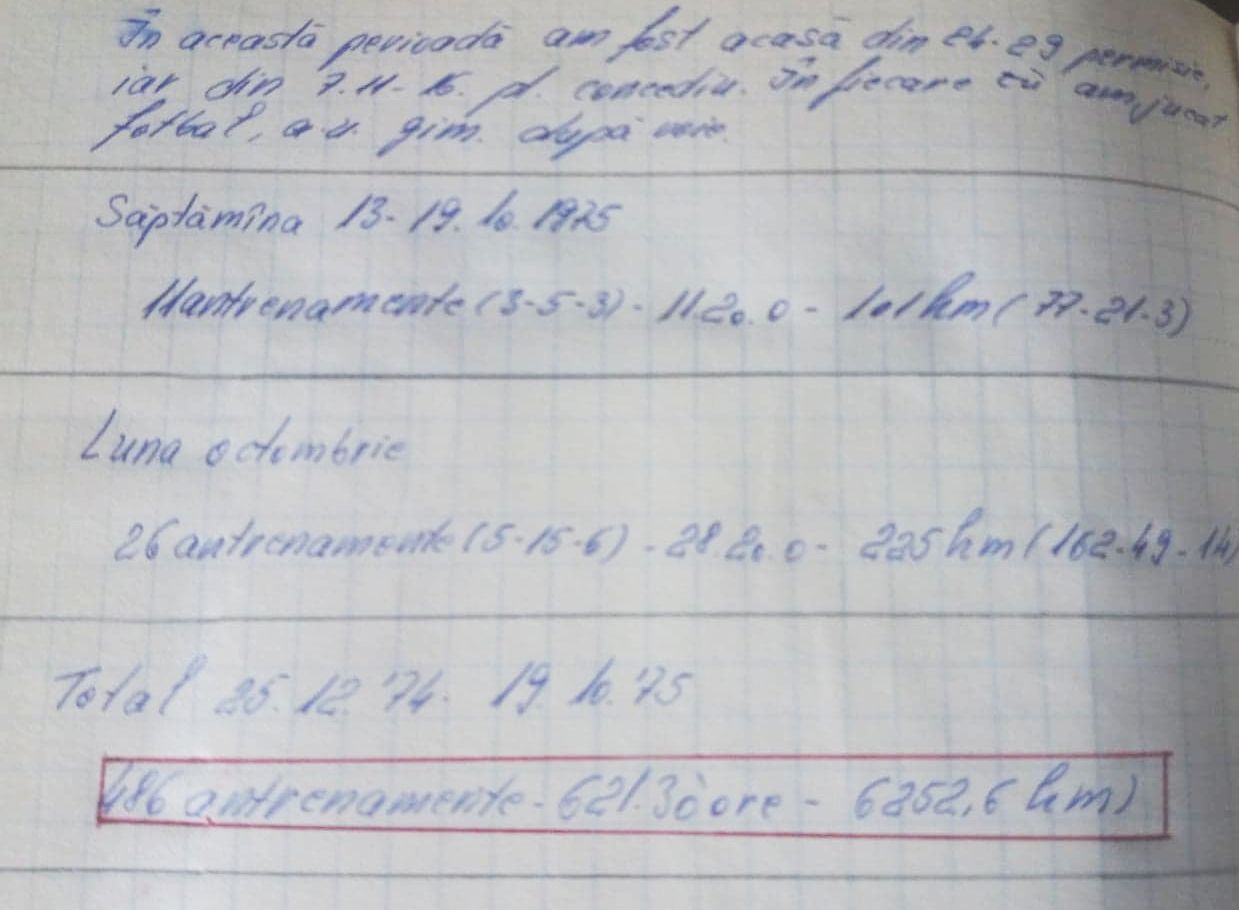 În această perioadă am fost acasă din 24-29 permisie,
iar din 7.11-16. pl. concediu. În fiecare zi am jucat
fotbal, a.u. gim. după voie.
Săptămîna 13-19.10.1975
11 antrenamente (3-5-3) - 11.20.0 - 101 km (77-21-3)
Luna octombrie
26 antrenamente (5-15-6) - 28.20.0 - 225 km (162-49-14)
Total 25.12.'74. 19.10.'75
486 antrenamente - 621.30 ore - 6252,6 km)